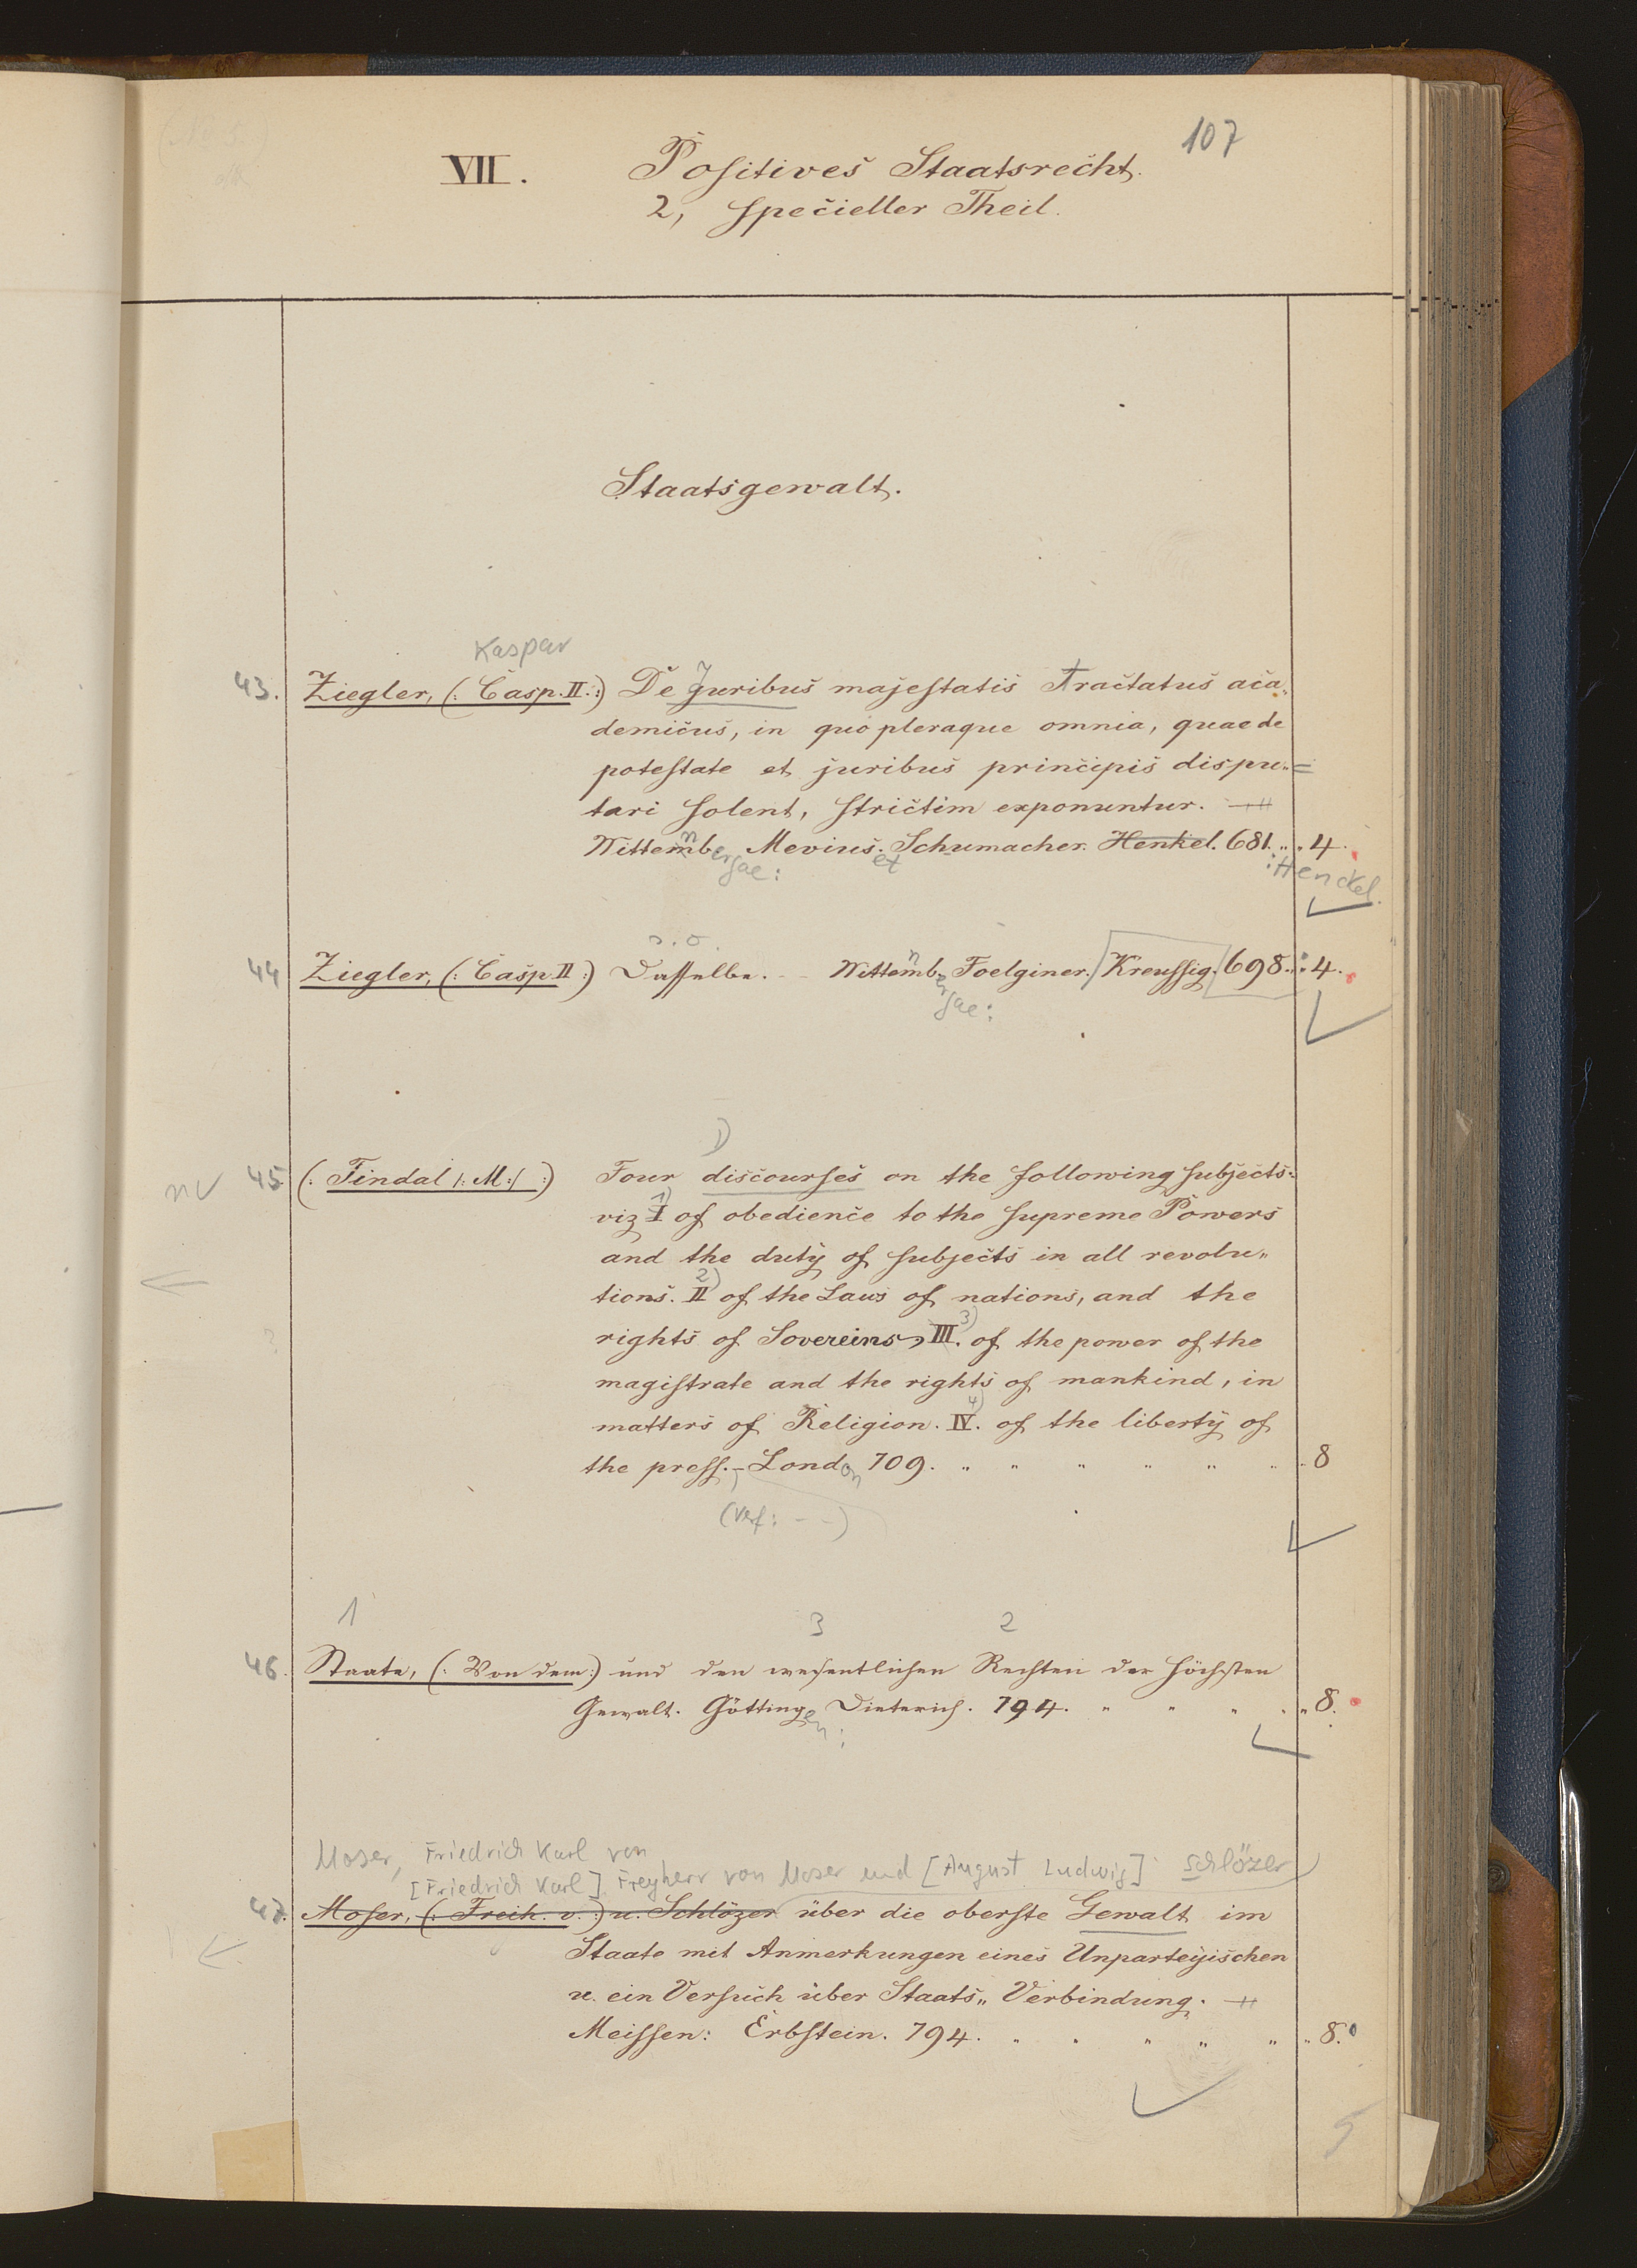 107
VII. Positives Staatsrecht.
2, specieller Theil.
Staatsgewalt.
Kaspar
43. Ziegler, (: Casp. II. :) De Juribus majestatis Tractatus aca„
demicus, in quo pleraque omnia, quae de
potestate et juribus principis dispu„
tari solent, strictim exponuntur. —
Wittemb. Mevius. Schumacher. Henkel. 681. „ „ 4.
n ergae: et : Henckel.
s. o.
44 Ziegler, (: Casp. II :) Dasselbe. — Wittemb. Foelginer. Kreussig. 698. „ 4.
n ergae:
1)
nv 45 (: Tindal /: M :/ :) Four discourses on the following subjects:
viz I 1) of obedience to the supreme Powers
and the duty of subjects in all revolu„
tions. II 2) of the Laws of nations, and the
rights of Sovereins, III. 3) of the power of the
magistrate and the rights of mankind, in
matters of Religion. IV. 4) of the liberty of
the press. – London 709. „ „ „ „ „ „ „ 8
(Verf: – –)
1 3 2
46. Staate, (: Von dem :) und den wesentlichen Rechten der höchsten
Gewalt. Göttingen: Dieterich. 794. „ „ „ „ „ 8.
Moser, Friedrich Karl von
[Friedrich Karl] Freyherr von Moser und [August Ludwig] Schlözer
47. Moser, (: Freih. v. :) u. Schlözer über die oberste Gewalt im
Staate mit Anmerkungen eines Unparteyischen
u. ein Versuch über Staats„ Verbindung. —
Meissen: Erbstein. 794. „ „ „ „ „ „ 8.
5